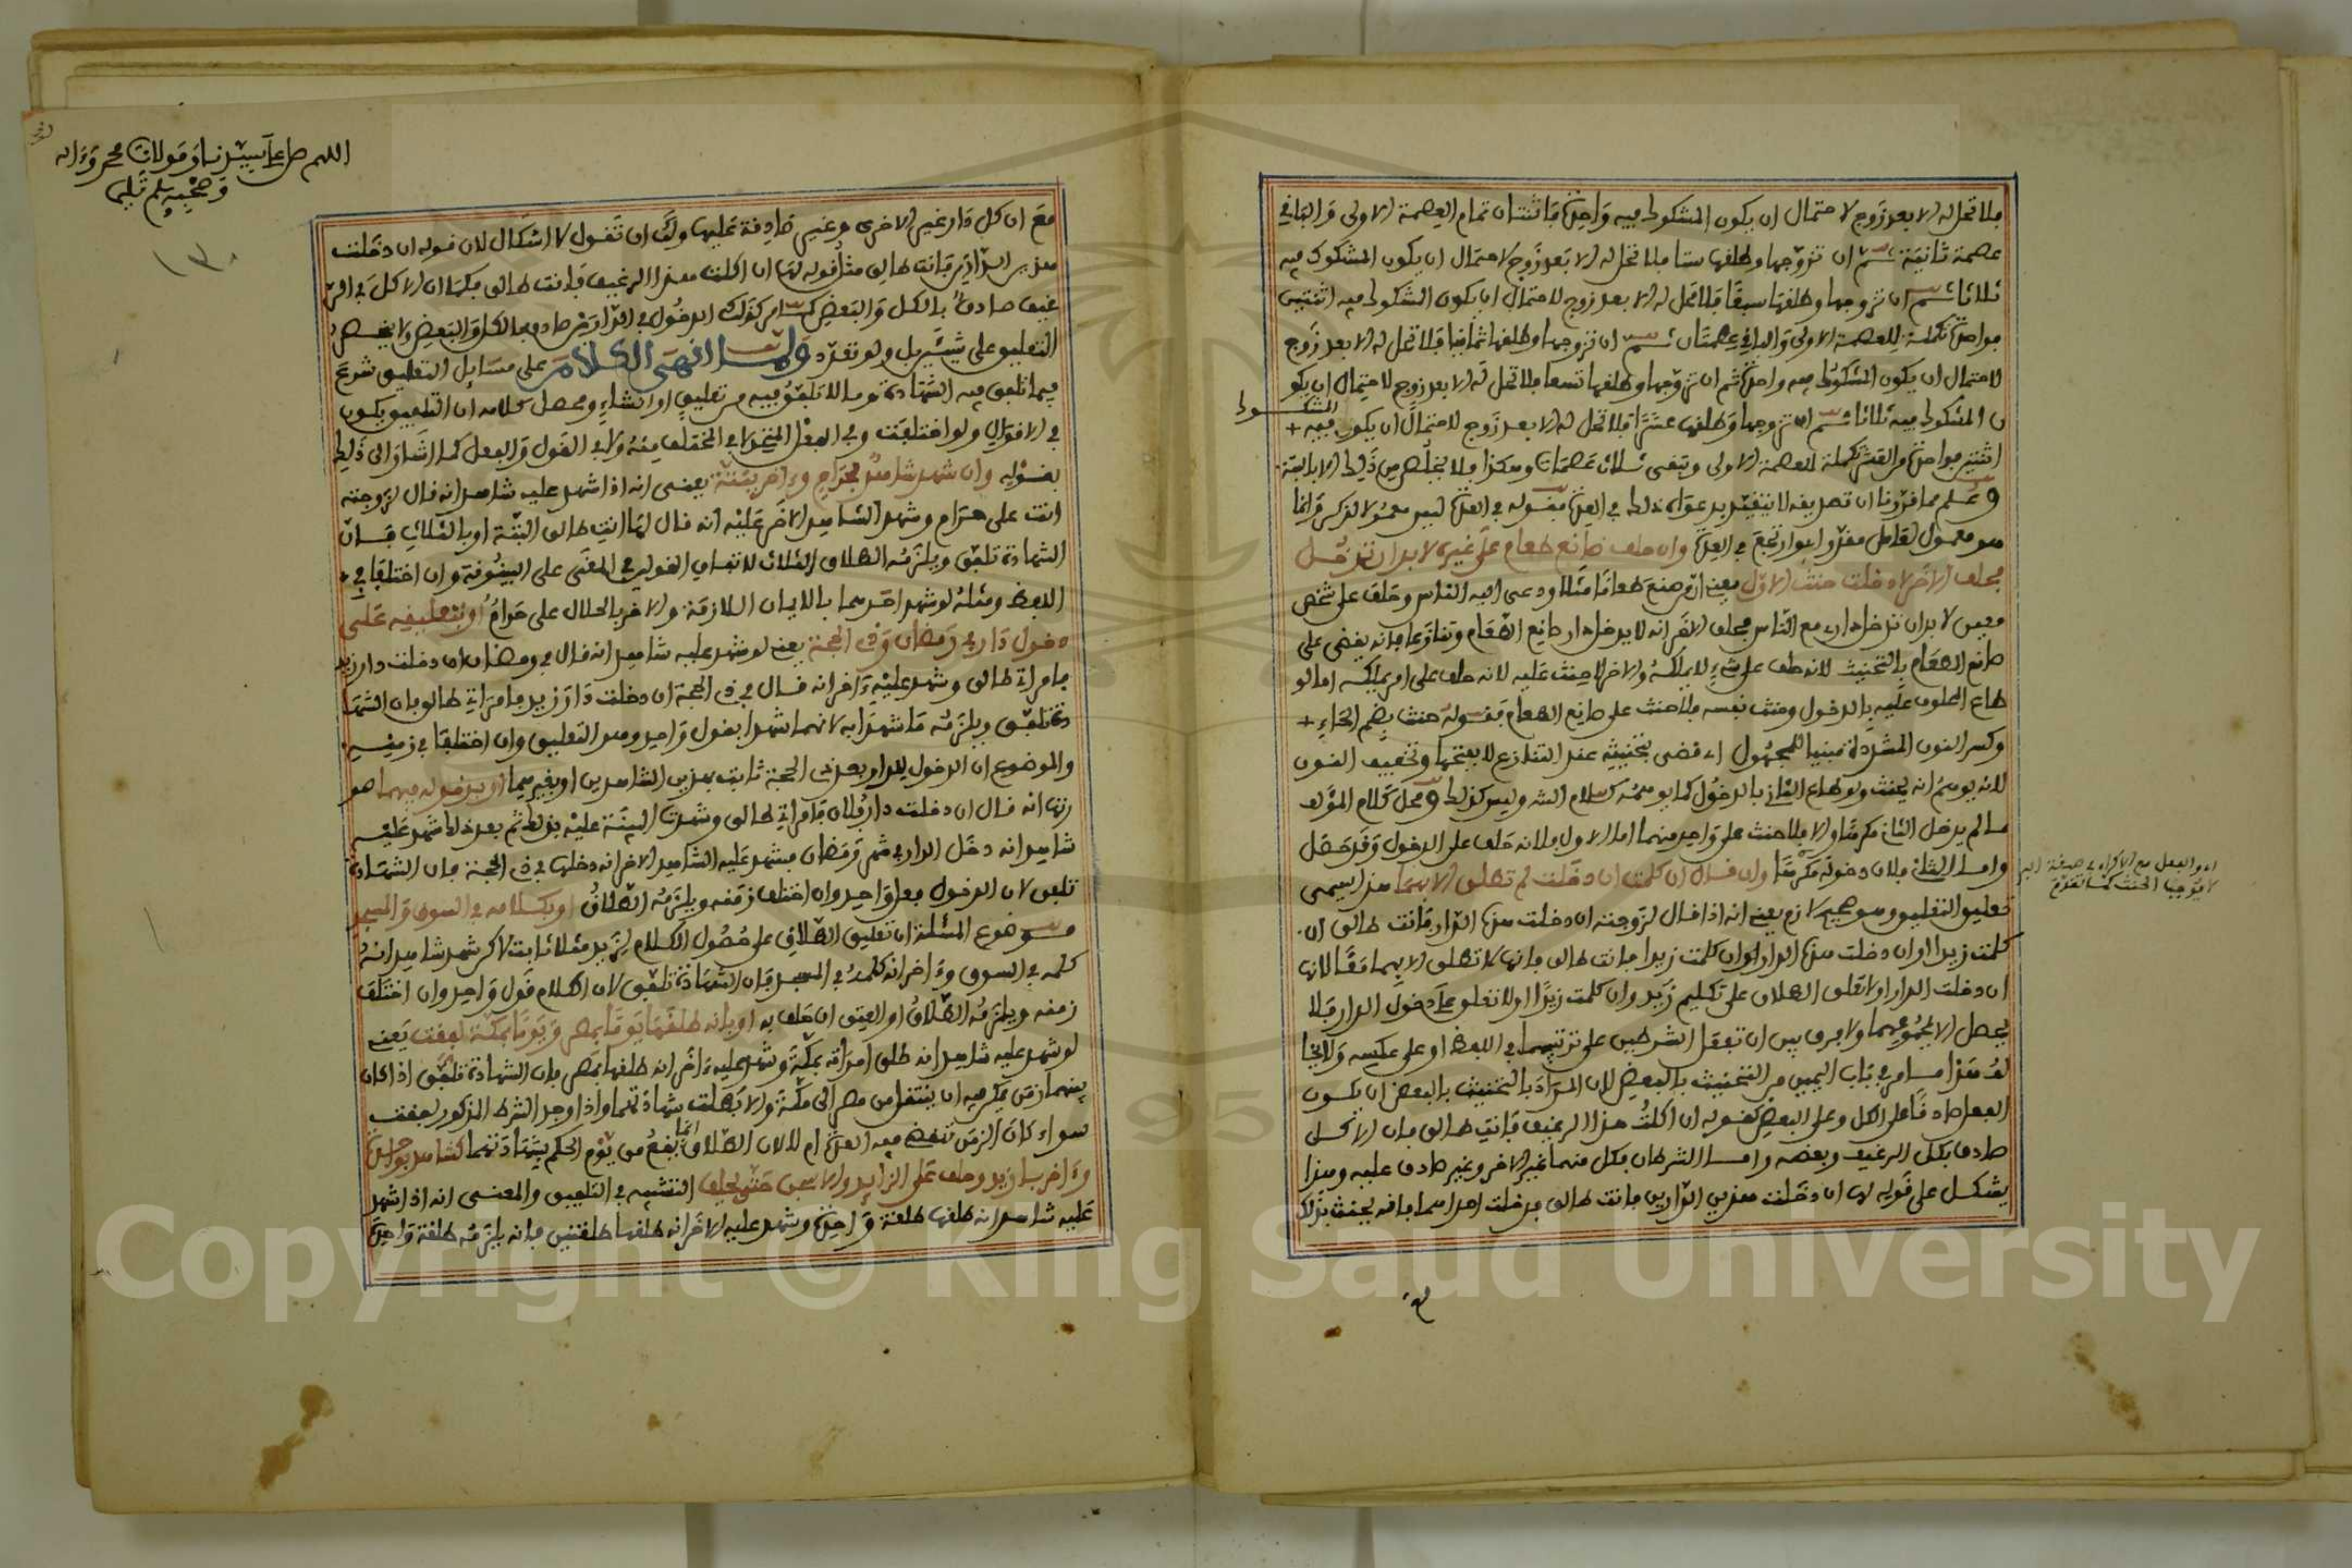 فلا تحل له الا بعد زوج لاحتمال ان يكون المشكوك فيه واحدة فاثنتان تمام العصمة الاولى والباقي
عصمة ثانية ثم ان تزوجها وطلقها ستا فلا تحل له الا بعد زوج لاحتمال ان يكون المشكوك فيه
ثلاثا ثم ان تزوجها وطلقها سبعا فلا تحل له الا بعد زوج لاحتمال ان يكون المشكوك فيه اثنتين
فواحدة تكملة للعصمة الاولى والباقي عصمتان ثم ان تزوجها وطلقها ثمانيا فلا تحل له الا بعد زوج
لاحتمال ان يكون المشكوك فيه واحدة ثم ان تزوجها وطلقها تسعا فلا تحل له الا بعد زوج لاحتمال ان يكو
ن المشكوك فيه ثلاثا ثم ان تزوجها وطلقها عشرا فلا تحل له الا بعد زوج لاحتمال ان يكون فيه +
المشكوك
اثنتين فواحدة من العشر تكملة للعصمة الاولى وتبقى ثلاث عصمات وهكذا فلا يخلص من ذلك الا بالبتة
وعلم مما قررنا ان تصديقه لا يتقيد بدعواه ذلك في العدة فقوله في العدة ليس معمولا لذكر وانما
هو معمول لعامل مقدر اي وارتجع في العدة وان حلف صانع طعام على غيره لا بد ان تدخل
فحلف الآخر لا دخلت حنث الاول يعني ان من صنع طعاما مثلا ودعى اليه الناس وحلف على شخص
معين لا بد ان تدخل داره مع الناس فحلف الآخر انه لا يدخل دار صانع الطعام وتنازعا فانه يقضى على
صانع الطعام بالتحنيث لانه حلف على شيء لا يملكه والآخر لا حنث عليه لانه حلف على امر يملكه اما لو
طاع المحلوف عليه بالدخول وحنث نفسه فلا حنث على صانع الطعام فقوله حنث بضم الحاء +
وكسر النون المشددة مبنيا للمجهول اي قضي بتحنيثه عند التنازع لا بفتحها وتخفيف النون
لانه يوهم انه يحنث ولو طاع الثاني بالدخول كما يوهمه كلام الشر وليس كذلك ومحل كلام المؤلف
ما لم يدخل الثاني مكرها والا فلا حنث على واحد منهما اما الاول فلانه حلف على الدخول وقد حصل
واما الثاني فلان دخوله مكرها وان قال ان كلمت ان دخلت لم تطلق الا بهما هذا يسمى
اي والفعل مع الاكراه في صيغة البر
لا يوجب الحنث كما تقدم
تعليق التعليق وهو صحيح لازم يعني انه اذا قال لزوجته ان دخلت هذه الدار فانت طالق ان
كلمت زيدا او ان دخلت هذه الدار وان كلمت زيدا فانت طالق فانها لا تطلق الا بهما معا لان
ان دخلت الدار اولا تعلق الطلاق على تكليم زيد وان كلمت زيدا اولا تعلق على دخول الدار فلا
يحصل الا بمجموعهما ولا فرق بين ان تفعل الشرطين على ترتيبهما في اللفظ او على عكسه ولا يخا
لف هذا ما مر في باب اليمين من التحنيث بالبعض لان المراد بالتحنيث بالبعض ان يكون
الفعل صادقا على الكل وعلى البعض كقوله ان اكلت هذا الرغيف فانت طالق فان الاكل
صادق بكل الرغيف وبعضه واما الشرطان فكل منهما غير الآخر وغير صادق عليه وهذا
يشكل على قوله لها ان دخلت هذين الدارين فانت طالق فدخلت احداهما فانه يحنث بذلك
اللهم صل على سيدنا ومولانا محمد وءاله
وصحبه وسلم تسليما
١٣٠
مع ان كل دار غير الاخرى وغير صادقة عليها ولك ان تقول لا اشكال لان قوله ان دخلت
هذين الدارين فانت طالق مثل قوله لها ان اكلت هذا الرغيف فانت طالق فكما ان الاكل في الر
غيف صادق بالكل والبعض كما مر كذلك الدخول في الدارين صادق بالكل والبعض ولا يخص
التعليق على شيئين بل ولو تعدد ولما انهى الكلام على مسائل التعليق شرع
فيما تلفق فيه الشهادة وما لا تلفق فيه من تعليق او انشاء ومحصل كلامه ان التلفيق يكون
في الاقوال ولو اختلفت وفي الفعل المتحد لا في المختلف منه ولا في القول والفعل كما اشار الى ذلك
بقوله وان شهد شاهد بحرام وءاخر ببتة يعني انه اذا شهد عليه شاهد انه قال لزوجته
انت علي حرام وشهد الشاهد الآخر عليه انه قال لها انت طالق البتة او بالثلاث فان
الشهادة تلفق ويلزمه الطلاق الثلاث لاتفاق القولين في المعنى على البينونة وان اختلفا في +
اللفظ ومثله لو شهد احدهما بالايمان اللازمة والآخر بالحلال علي حرام او بتعليقه على
دخول دار في رمضان وذي الحجة يعني لو شهد عليه شاهد انه قال في رمضان ان دخلت دار زيد
فامراتي طالق وشهد عليه ءاخر انه قال في ذي الحجة ان دخلت دار زيد فامراتي طالق فان الشها
دة تلفق ويلزمه ما شهدا به لانهما شهدا بقول واحد وهو التعليق وان اختلفا في زمنه
والموضوع ان الدخول للدار بعد ذي الحجة ثابت بهذين الشاهدين او بغيرهما او بدخوله فيهما هو
رتها انه قال ان دخلت دار فلان فامراتي طالق وشهدت البينة عليه بذلك ثم بعد ذلك شهد عليه
شاهد انه دخل الدار في شهر رمضان فشهد عليه الشاهد الآخر انه دخلها في ذي الحجة فان الشهادة
تلفق لان الدخول فعل واحد وان اختلف زمنه ويلزمه الطلاق او بكلامه في السوق والمسجد
موضوع المسئلة ان تعليق الطلاق على حصول الكلام لزيد مثلا ثابت لاكن شهد شاهد انه
كلمه في السوق وءاخر انه كلمه في المسجد فان الشهادة تلفق لان الكلام قول واحد وان اختلف
زمنه ويلزمه الطلاق او العتق ان حلف به او بانه طلقها يوما بمصر ويوما بمكة لفقت يعني
لو شهد عليه شاهد انه طلق امراته بمكة وشهد عليه ءاخر انه طلقها بمصر فان الشهادة تلفق اذا كان
بينهما زمن يمكن فيه ان ينتقل من مصر الى مكة والا بطلت شهادتهما واذا وجد الشرط المذكور لفقت
سواء كان الزمن تنقضي فيه العدة ام لا لان الطلاق انما يقع من يوم الحكم بشهادتهما كشاهد بواحدة
وءاخر بازيد وحلف على الزائد والا سجن حتى يحلف التشبيه في التلفيق والمعنى انه اذا شهد
عليه شاهد انه طلقها طلقة واحدة وشهد عليه الآخر انه طلقها طلقتين فانه يلزمه طلقة واحدة
Copyright © King Saud University